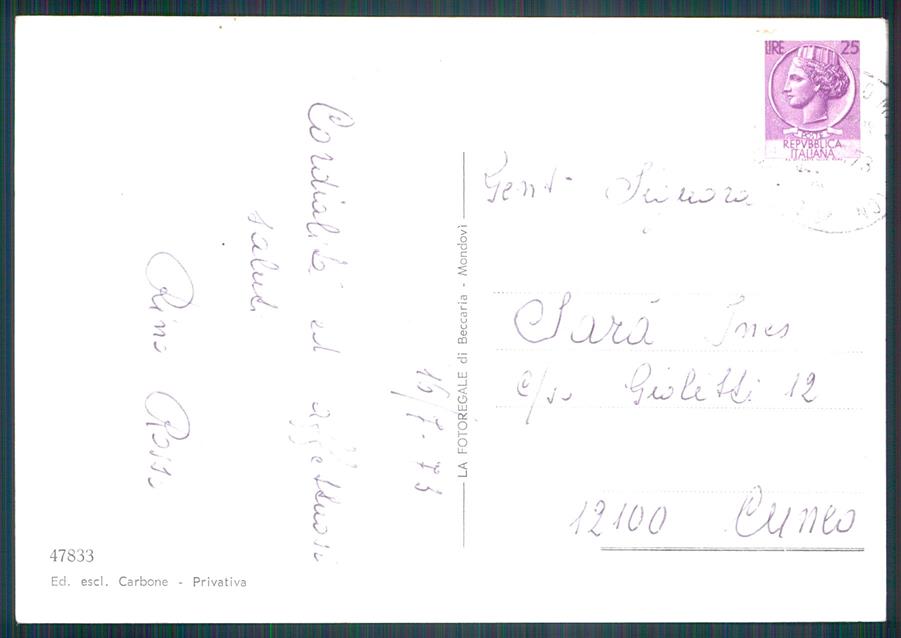 LIRE 25
POSTE
REPVBBLICA
ITALIANA
Gent. Signora
Sarà Ines
c/so Giolitti 12
12100 Cuneo
16/7-73
Cordialità ed affettuosi
saluti
Rina Rossi
LA FOTOREGALE di Beccaria - Mondovì
47833
Ed. escl. Carbone - Privativa